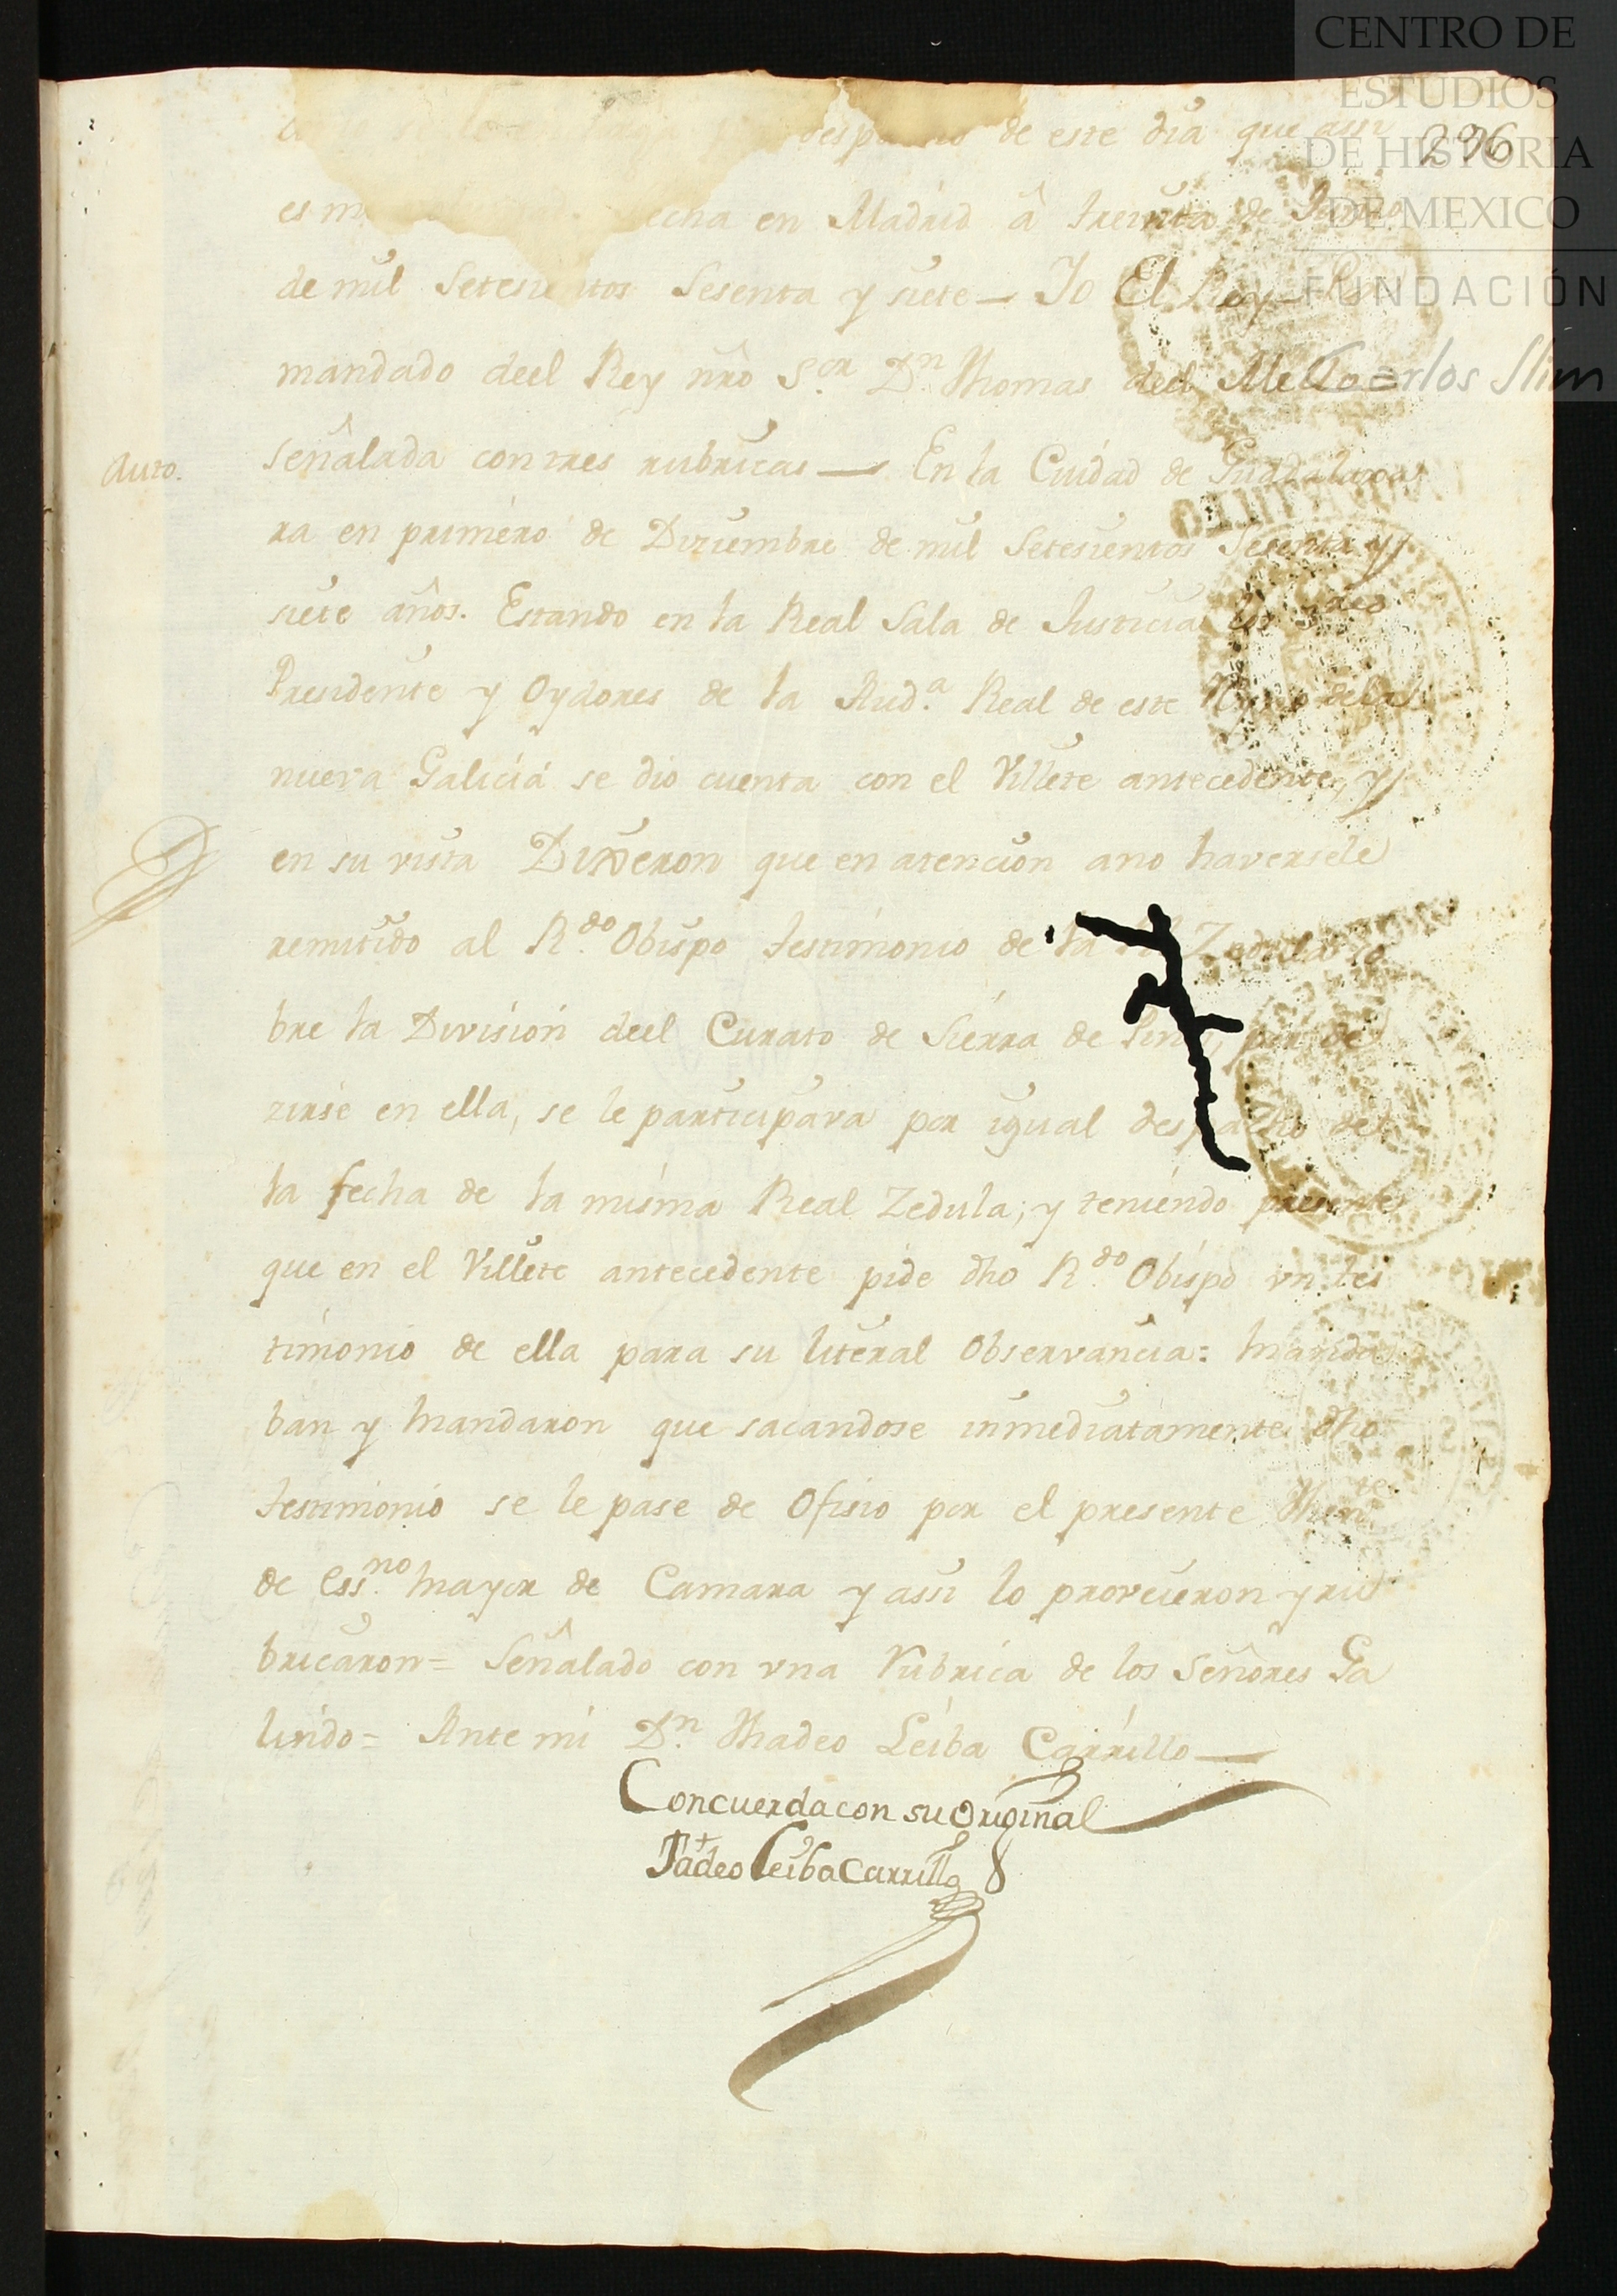 CENTRO DE
ESTUDIOS
DE HISTORIA
DE MEXICO
FUNDACIÓN
Carlos Slim
296
de este dia que assi
es m echa en Madrid â treinta de
de mil Setesientos Sesenta y siete — Io El Rey
mandado deel Rey nrô S.or D.n Thomas deel Mello
Auto.
señalada con tres rubricas — En la Ciudad de Guadalaxa
ra en primero de Diziembre de mil Setesientos Sesenta y
siete años. Estando en la Real Sala de Justicia los S.res
Presidente y Oydores de la Aud.a Real de este Reyno de la
nueva Galicia se dio cuenta con el Villete antecedente, y
en su vista Dixeron que en atencion ano haversele
remitido al R.do Obispo testimonio de la Rl Zedula so
bre la Division deel Curato de Sierra de Pinos, por de
zirse en ella, se le participava por igual despacho de
la fecha de la misma Real Zedula; y teniendo presente
que en el Villete antecedente pide dho R.do Obispo vn tes
timonio de ella para su literal Observancia: manda
ban y mandaron que sacandose inmediatamente dho
testimonio se le pase de Ofisio por el presente Then.te
de Ess.no mayor de Camara y assi lo proveieron y ru
bricaron = Señalado con vna Rubrica de los Señores Ga
lindo = Ante mi D.n Thadeo Leiba Carrillo —
Concuerda con su Original
Tadeo Leiba Carrillo